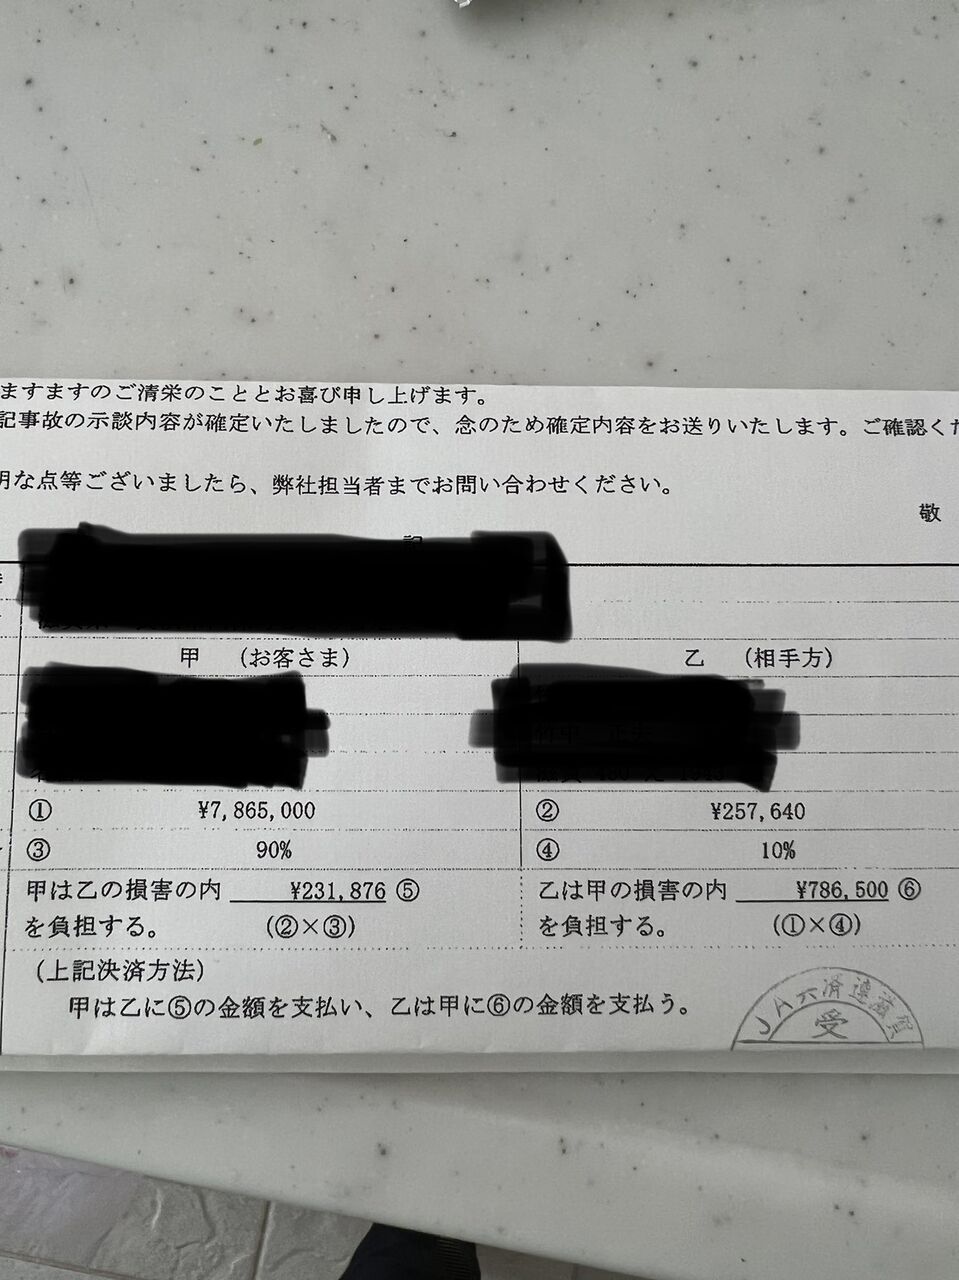 ますますのご清栄のこととお喜び申し上げます。
記事故の示談内容が確定いたしましたので、念のため確定内容をお送りいたします。ご確認くだ
明な点等ございましたら、弊社担当者までお問い合わせください。
敬
記
甲 (お客さま) 乙 (相手方)
① ¥7,865,000 ② ¥257,640
③ 90% ④ 10%
甲は乙の損害の内 ¥231,876 ⑤ 乙は甲の損害の内 ¥786,500 ⑥
を負担する。 (②×③) を負担する。 (①×④)
(上記決済方法)
甲は乙に⑤の金額を支払い、乙は甲に⑥の金額を支払う。
JA共済連滋賀
受